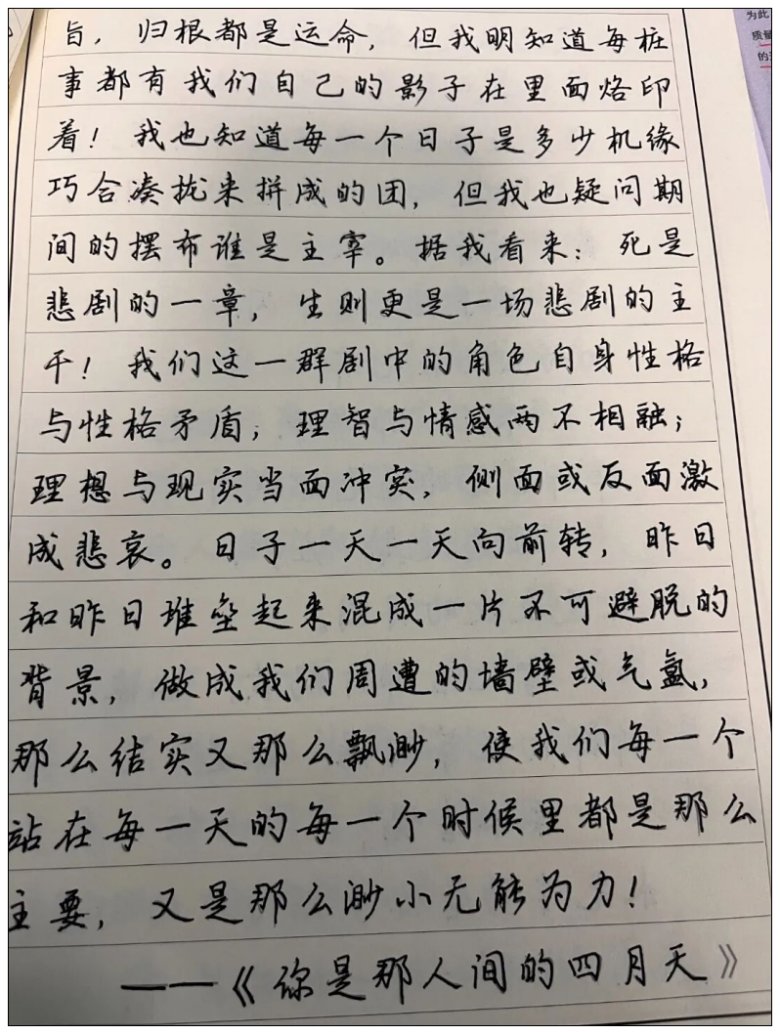 旨，归根都是运命，但我明知道每桩
事都有我们自己的影子在里面烙印
着！我也知道每一个日子是多少机缘
巧合凑拢来拼成的团，但我也疑问期
间的摆布谁是主宰。据我看来：死是
悲剧的一章，生则更是一场悲剧的主
干！我们这一群剧中的角色自身性格
与性格矛盾；理智与情感两不相融；
理想与现实当面冲突，侧面或反面激
成悲哀。日子一天一天向前转，昨日
和昨日堆垒起来混成一片不可避脱的
背景，做成我们周遭的墙壁或气氲，
那么结实又那么飘渺，使我们每一个
站在每一天的每一个时候里都是那么
主要，又是那么渺小无能为力！
——《你是那人间的四月天》
为此
质量